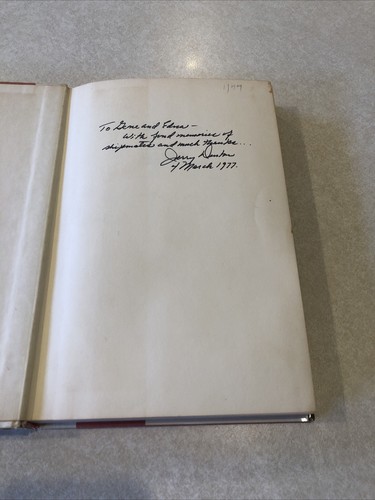 To Gene and Edna –
With fond memories of
shipmates and much thanks...
Jerry Denton
4 March 1977